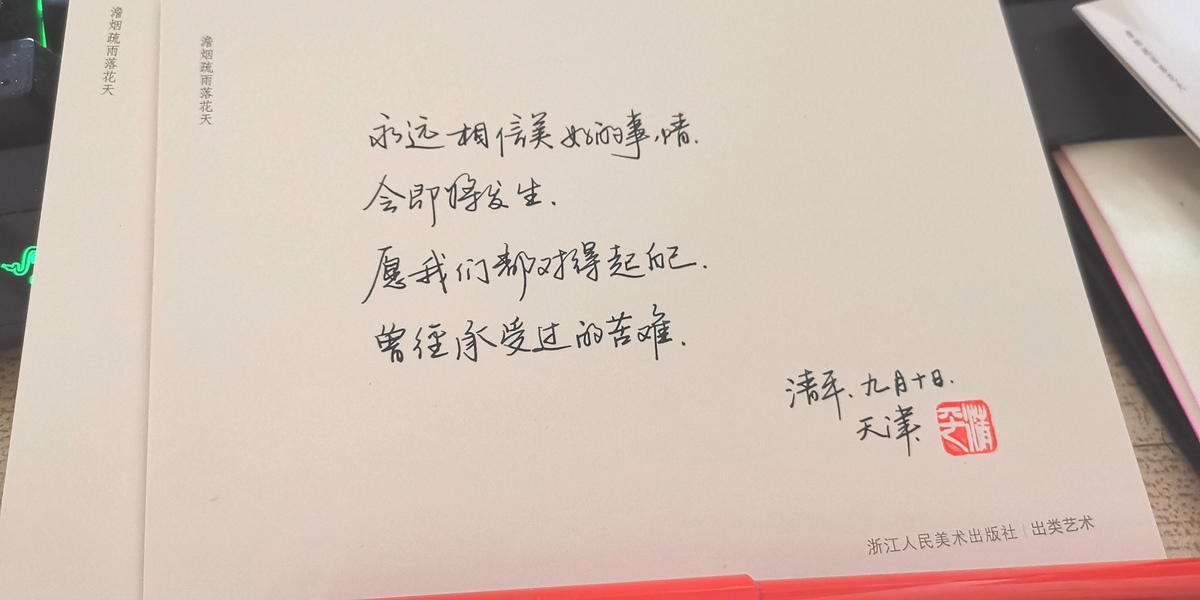 澹烟疏雨落花天
澹烟疏雨落花天
永远相信美好的事情.
会即将发生.
愿我们都对得起自己.
曾經承受过的苦难.
清平.九月十日.
天津.
清平
浙江人民美术出版社 | 出类艺术